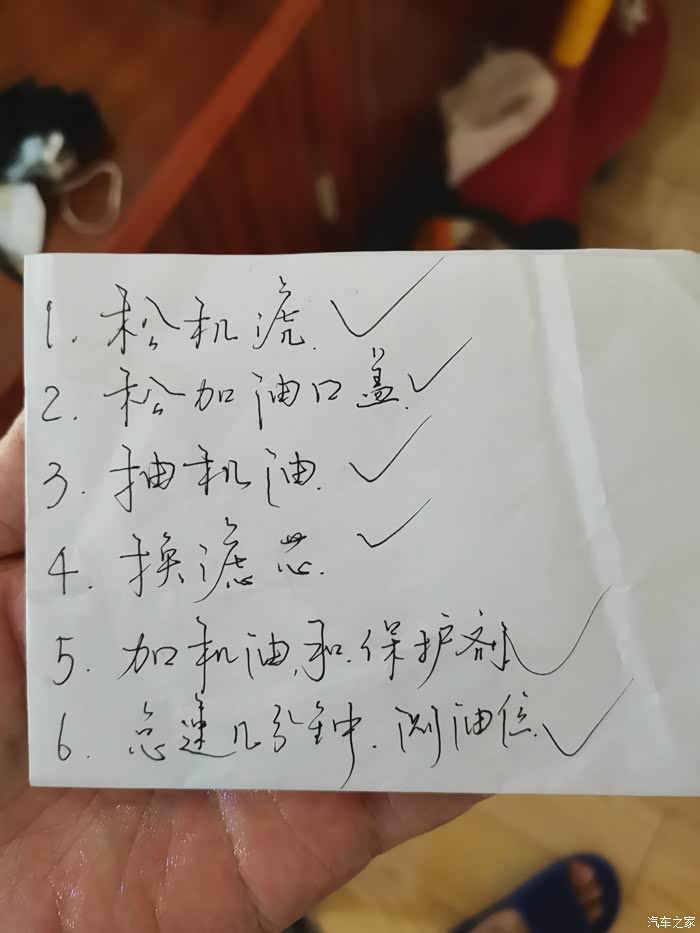 1. 松机滤. ✓
2. 松加油口盖. ✓
3. 抽机油. ✓
4. 换滤芯. ✓
5. 加机油和保护剂 ✓
6. 怠速几分钟. 测油位. ✓
汽车之家